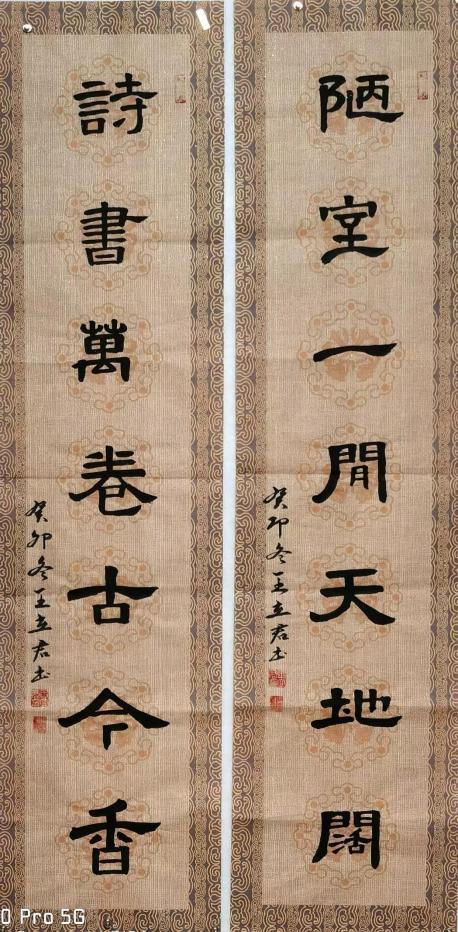 陋室一間天地闊
癸卯冬王立君书
詩書萬卷古今香
癸卯冬王立君书
0 Pro 5G